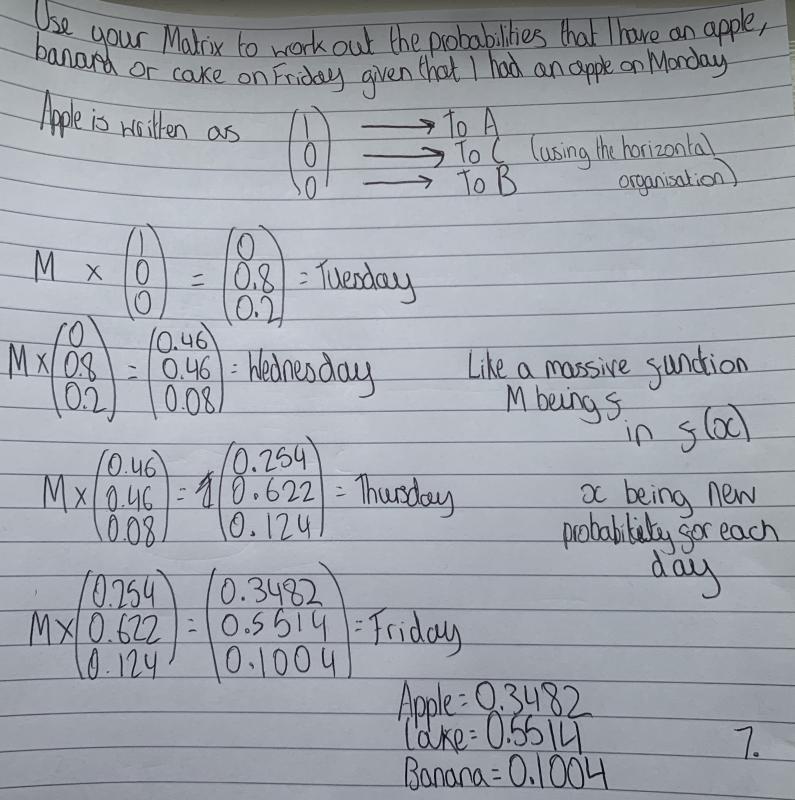 Use your Matrix to work out the probabilities that I have an apple,
banana or cake on Friday given that I had an apple on Monday
Apple is written as (1 0 0) → To A
→ To C (using the horizontal
→ To B organisation)
M × (1 0 0) = (0 0.8 0.2) = Tuesday
M × (0 0.8 0.2) = (0.46 0.46 0.08) = Wednesday
Like a massive function
M being f
in f(x)
M × (0.46 0.46 0.08) = (0.254 0.622 0.124) = Thursday
x being new
probability for each
day
M × (0.254 0.622 0.124) = (0.3482 0.5514 0.1004) = Friday
Apple = 0.3482
Cake = 0.5514
Banana = 0.1004
7.